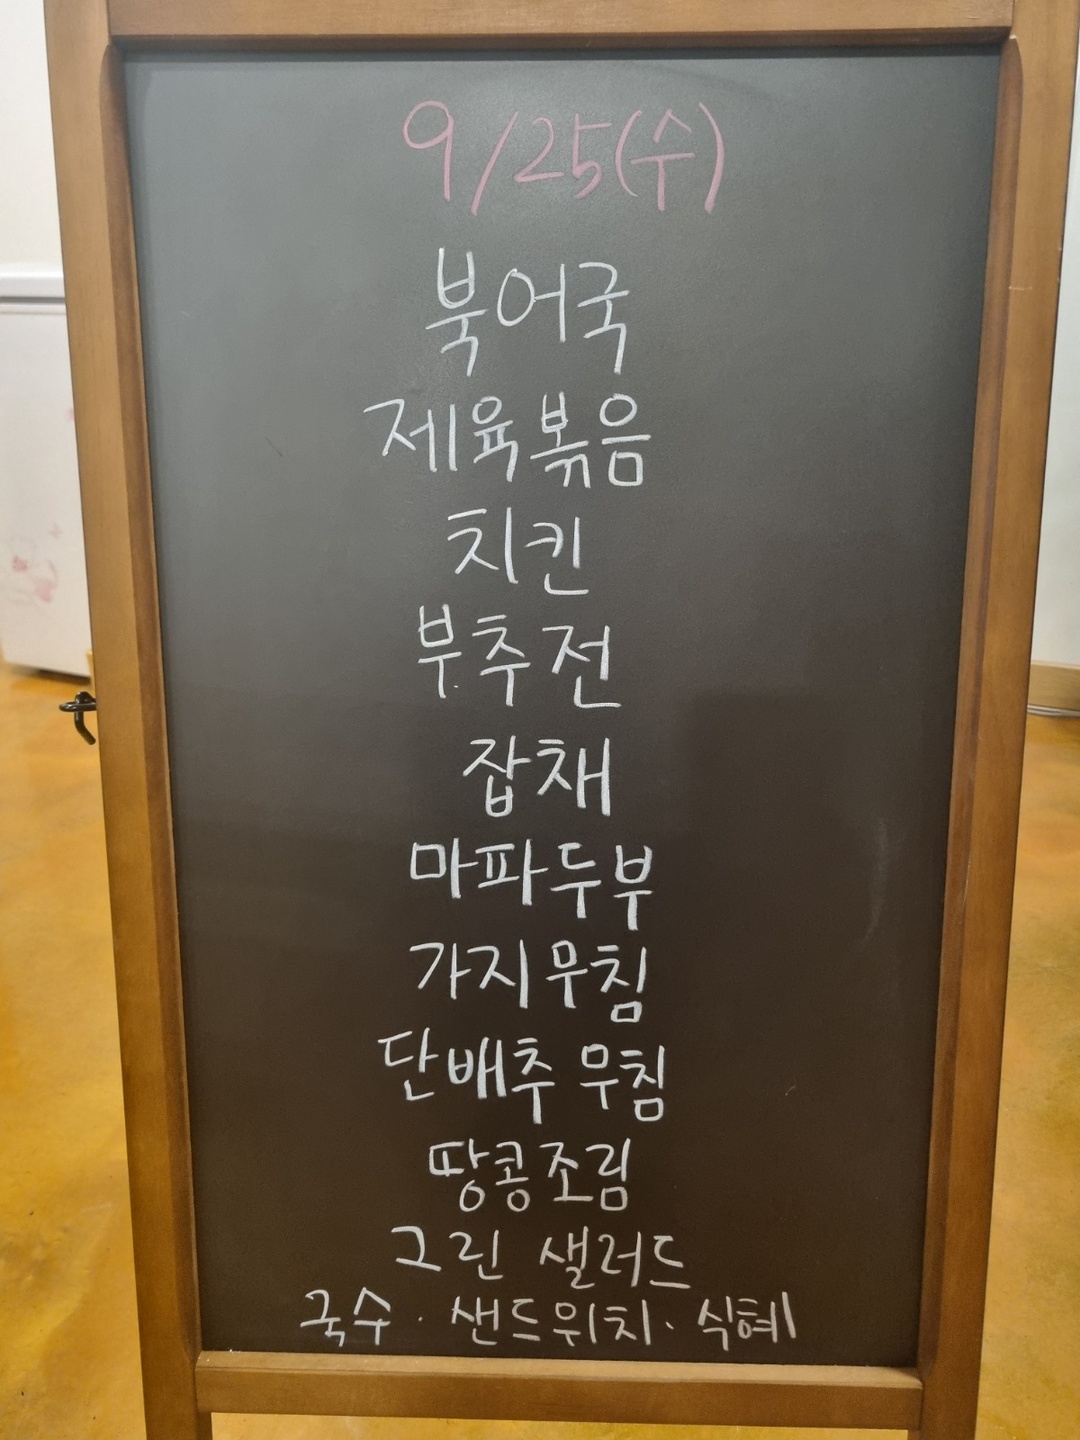 9/25(수)
북어국
제육볶음
치킨
부추전
잡채
마파두부
가지무침
단배추 무침
땅콩조림
그린 샐러드
국수 · 샌드위치 · 식혜